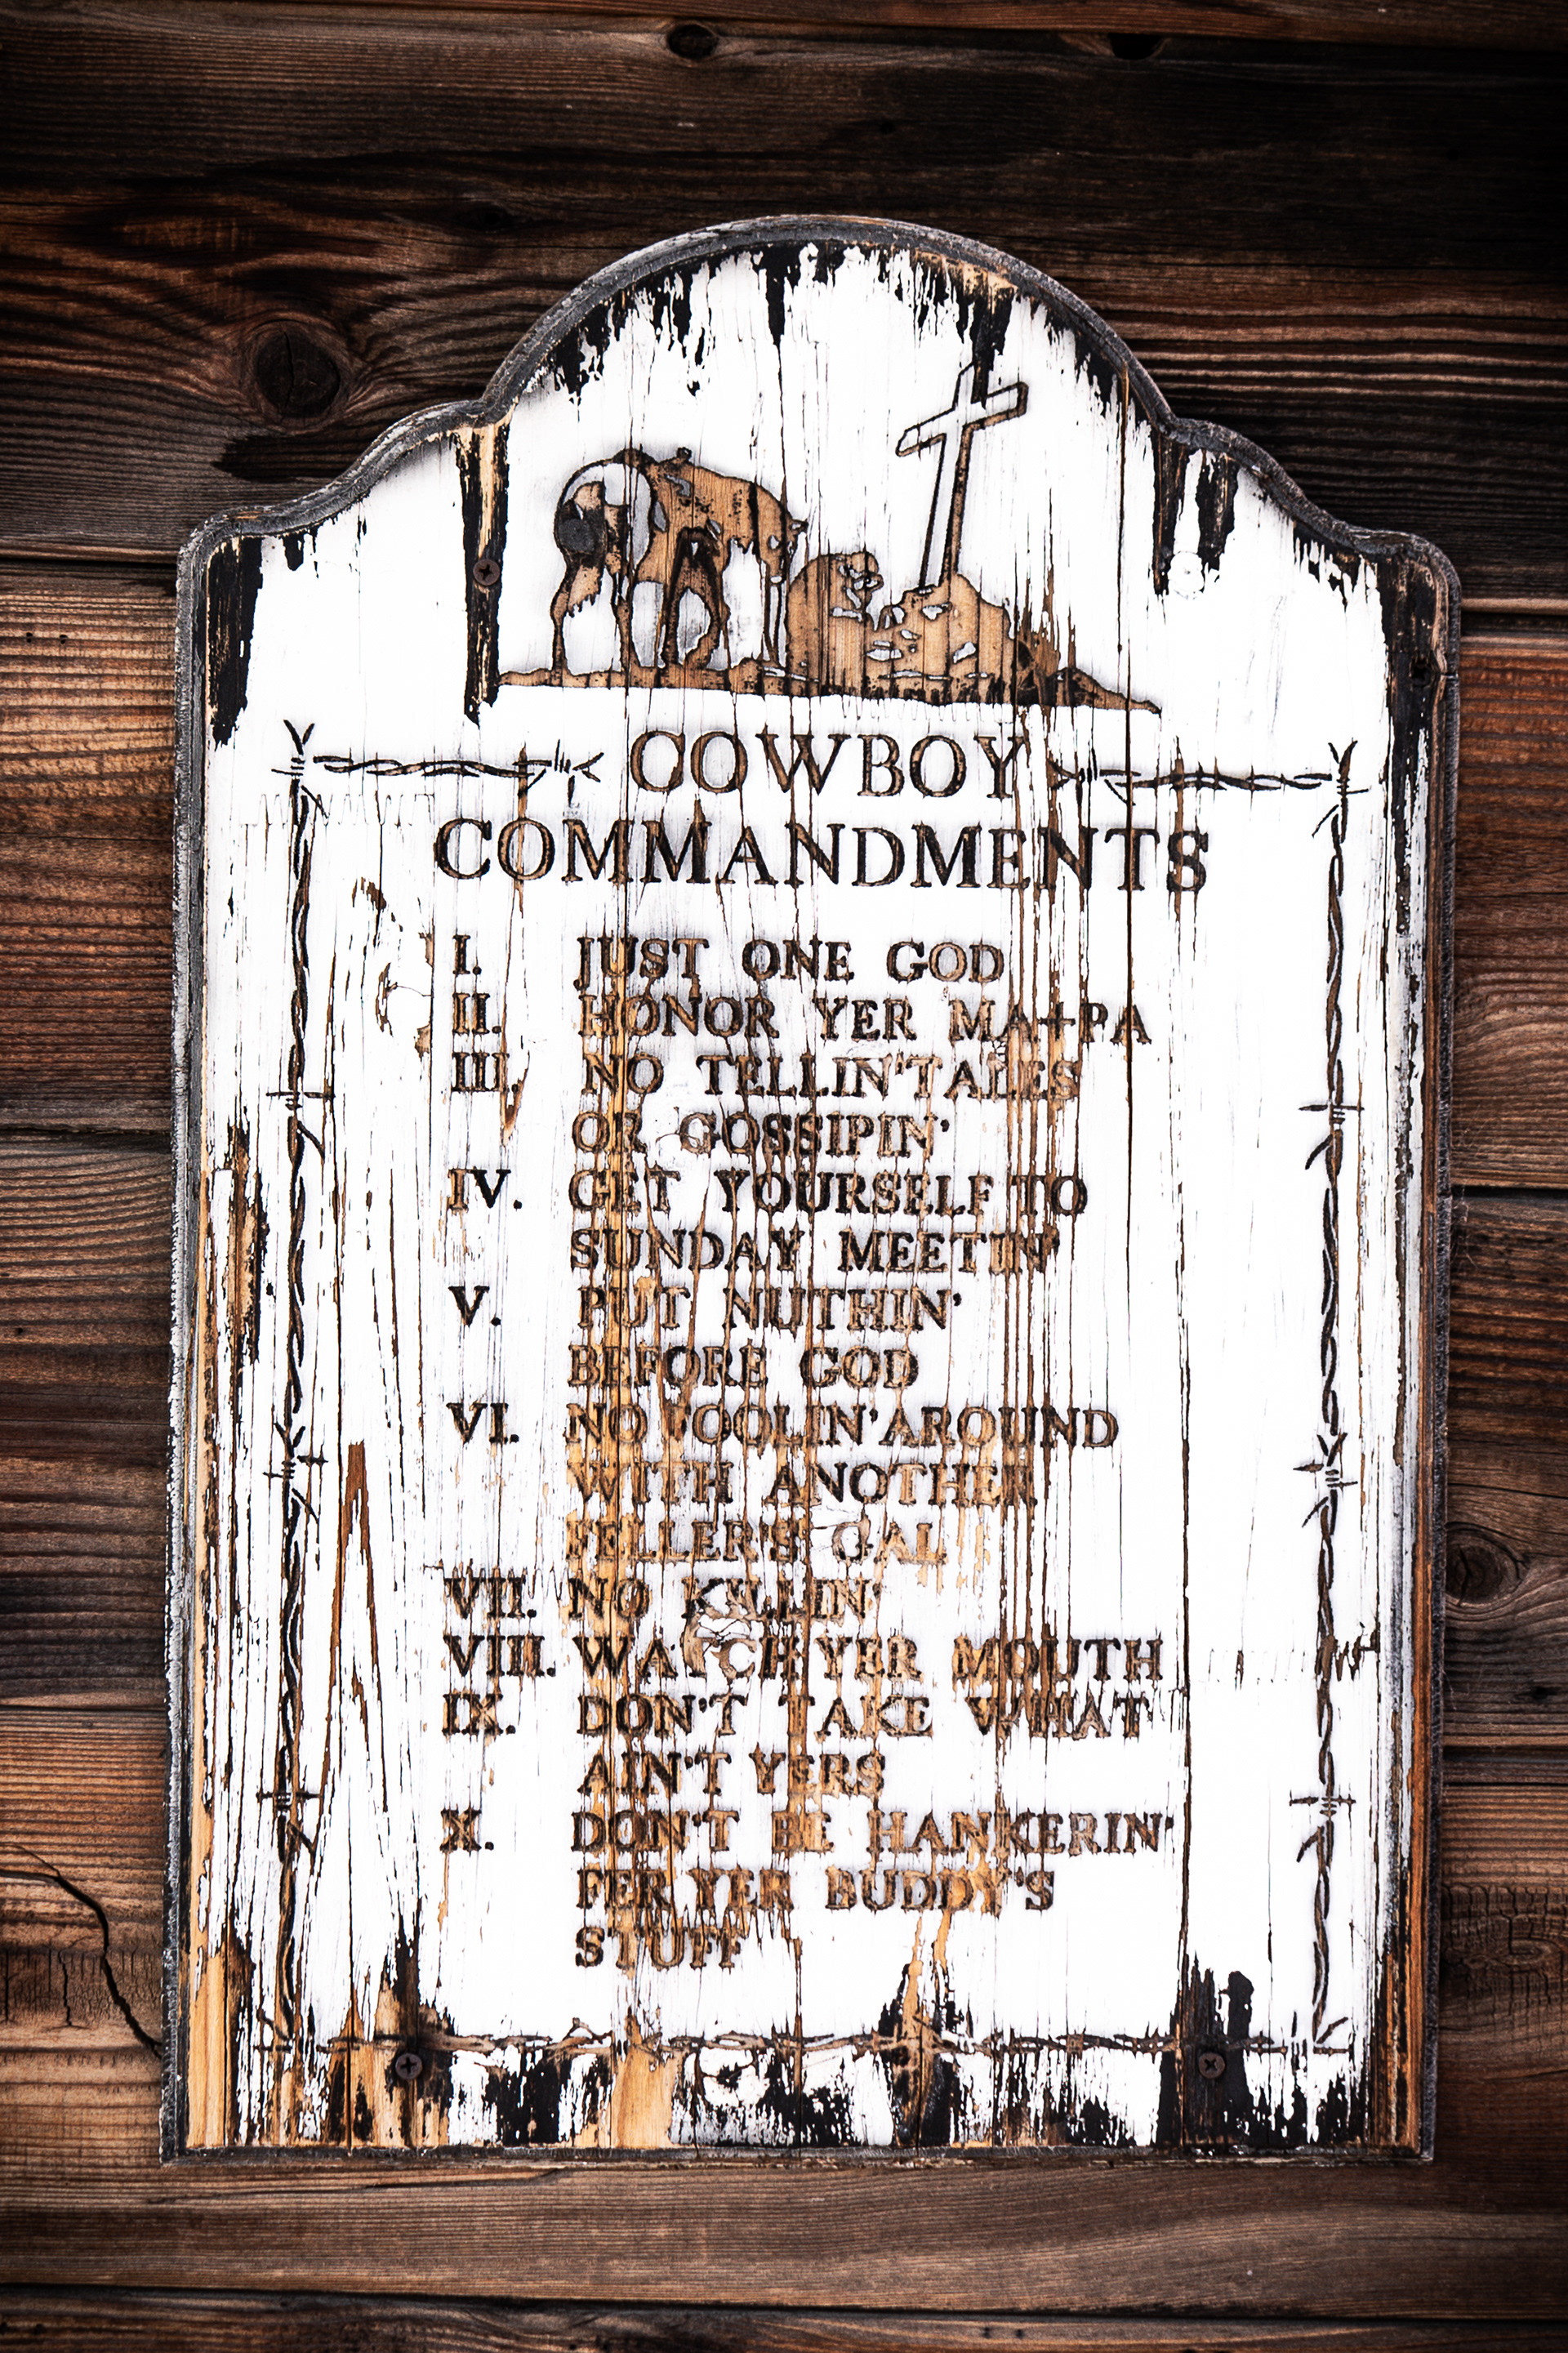 COWBOY
COMMANDMENTS
I. JUST ONE GOD
II. HONOR YER MA+PA
III. NO TELLIN' TALES
OR GOSSIPIN'
IV. GET YOURSELF TO
SUNDAY MEETIN'
V. PUT NUTHIN'
BEFORE GOD
VI. NO FOOLIN' AROUND
WITH ANOTHER
FELLER'S GAL
VII. NO KILLIN'
VIII. WATCH YER MOUTH
IX. DON'T TAKE WHAT
AIN'T YERS
X. DON'T BE HANKERIN'
FER YER BUDDY'S
STUFF